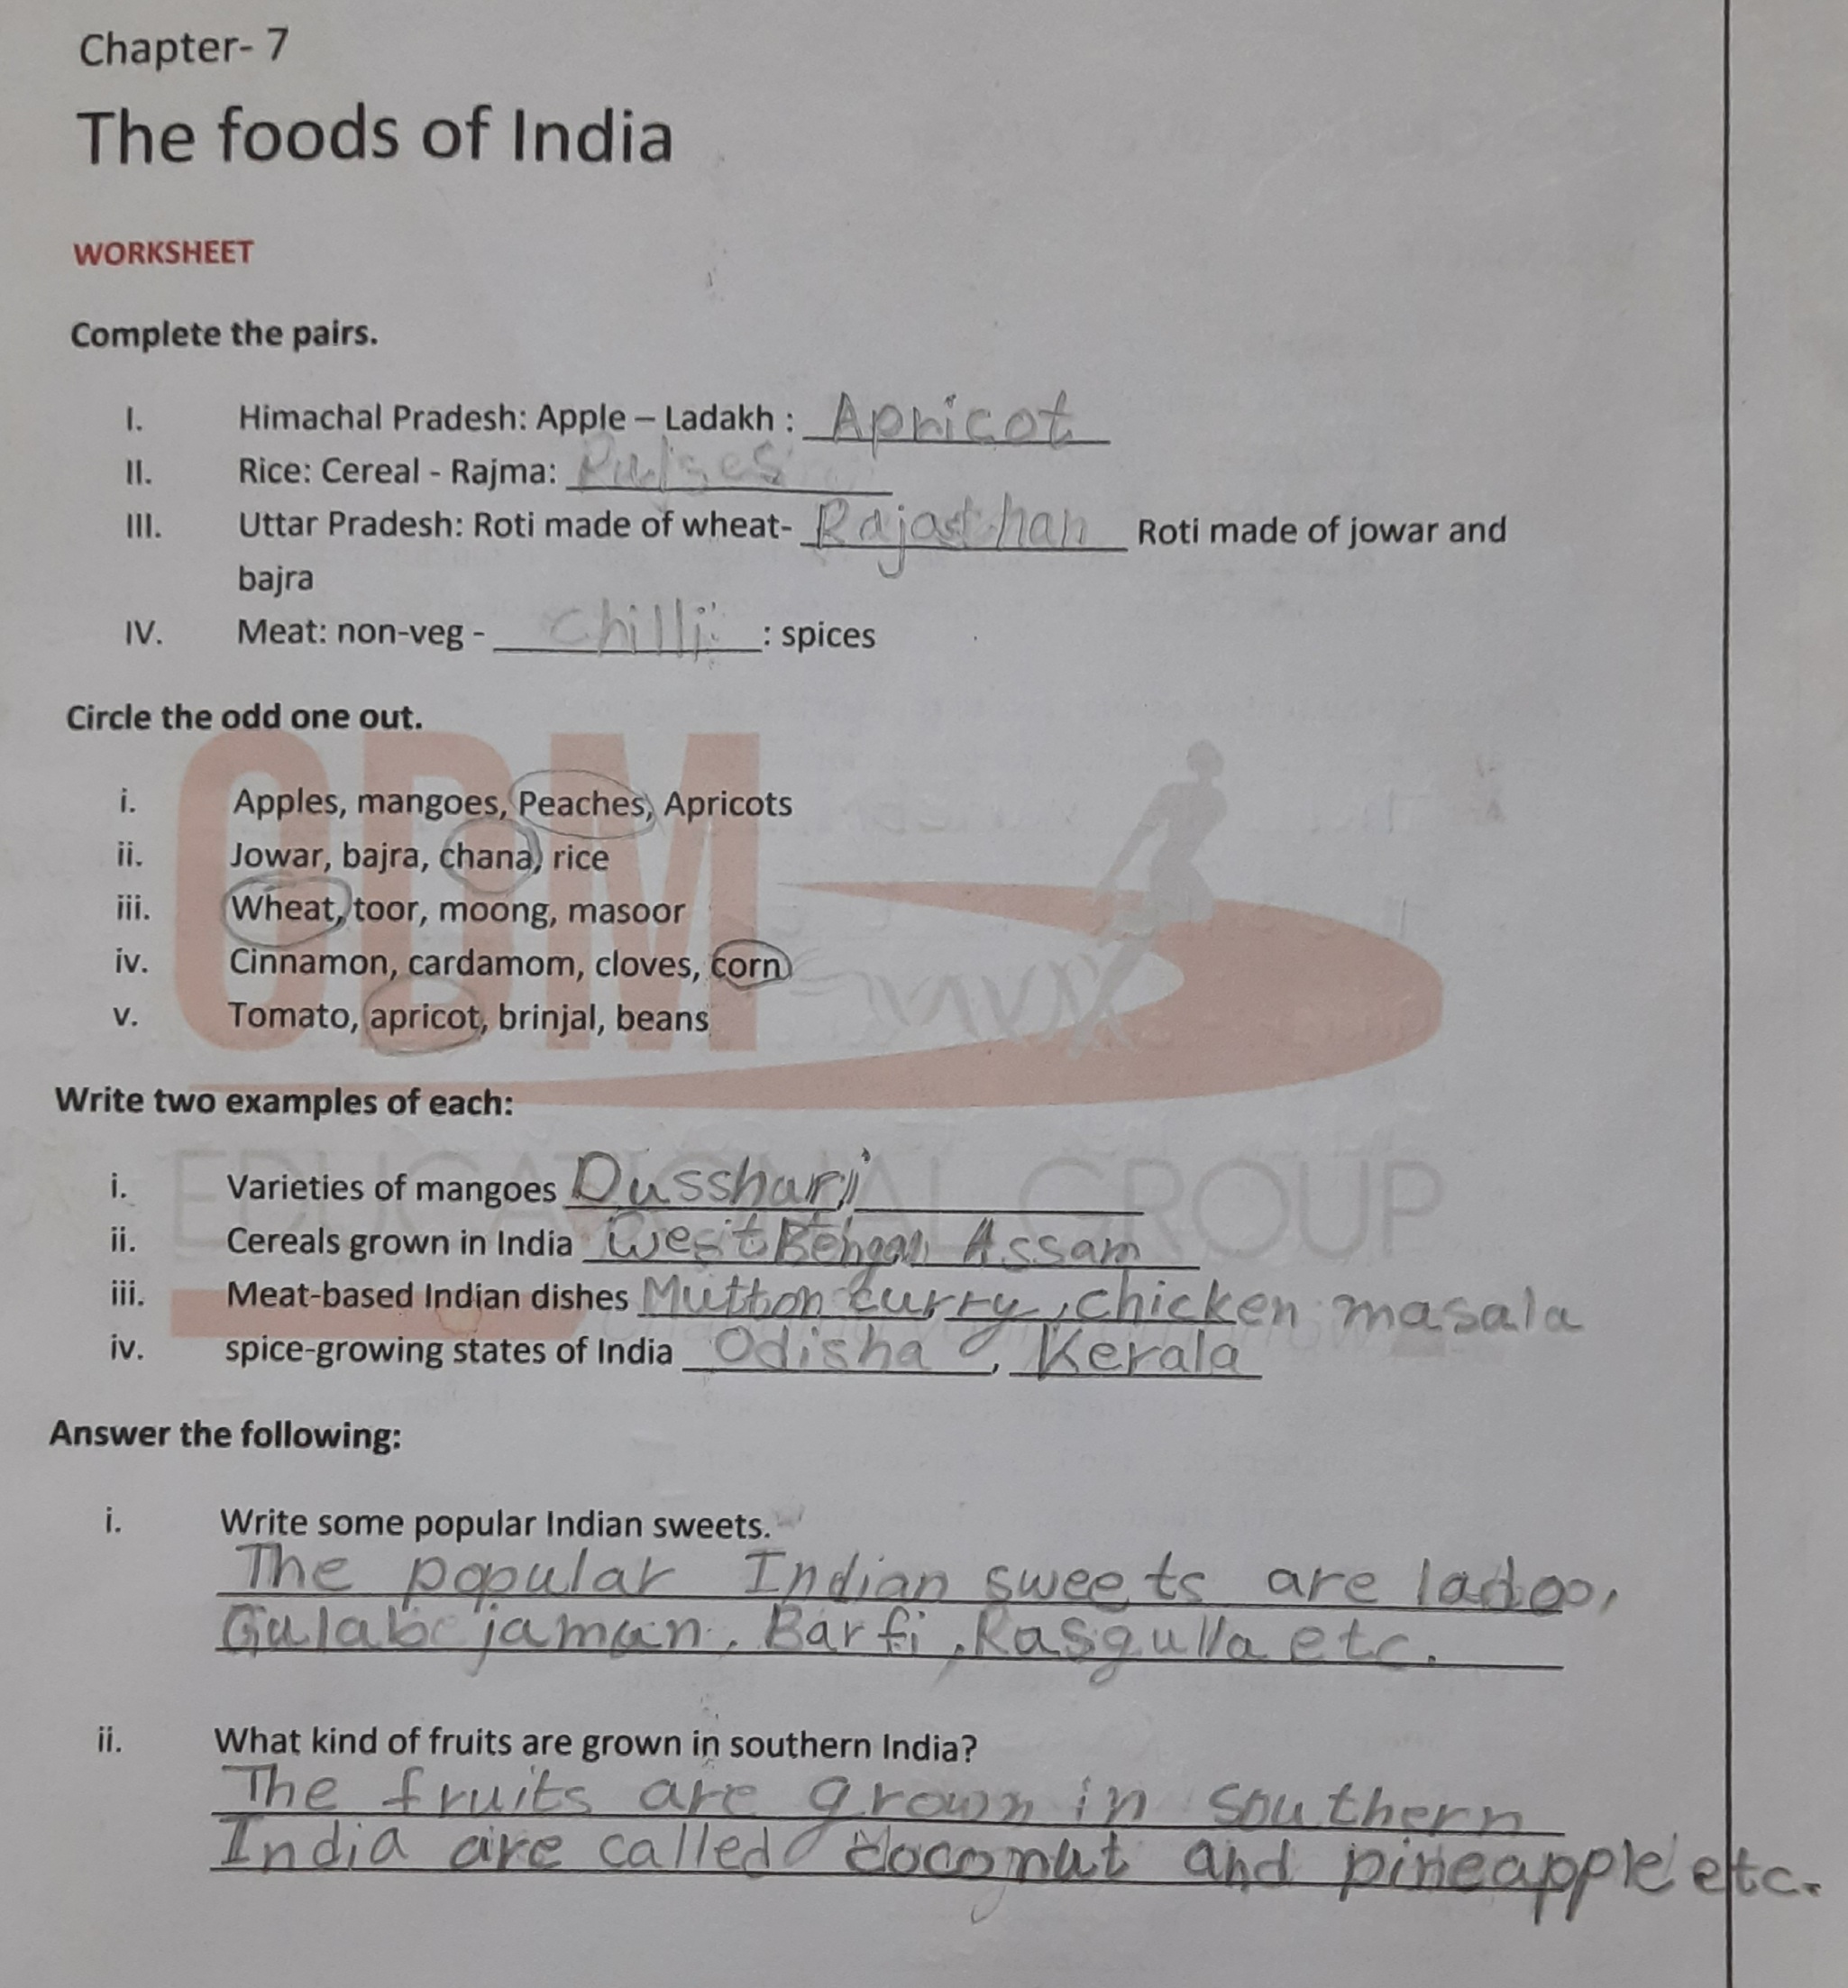 Chapter- 7
The foods of India
WORKSHEET
Complete the pairs.
I. Himachal Pradesh: Apple – Ladakh : Apricot
II. Rice: Cereal - Rajma: Pulses
III. Uttar Pradesh: Roti made of wheat- Rajasthan Roti made of jowar and
bajra
IV. Meat: non-veg - Chilli : spices
Circle the odd one out.
i. Apples, mangoes, Peaches, Apricots
ii. Jowar, bajra, chana, rice
iii. Wheat, toor, moong, masoor
iv. Cinnamon, cardamom, cloves, corn
v. Tomato, apricot, brinjal, beans
ODM
EDUCATIONAL GROUP
Write two examples of each:
i. Varieties of mangoes Dusshari,
ii. Cereals grown in India West Bengal, Assam
iii. Meat-based Indian dishes Mutton curry, chicken masala
iv. spice-growing states of India Odisha, Kerala
Answer the following:
i. Write some popular Indian sweets.
The popular Indian sweets are ladoo,
Gulab jamun, Barfi, Rasgulla etc.
ii. What kind of fruits are grown in southern India?
The fruits are grown in southern
India are called coconut and pineapple etc.